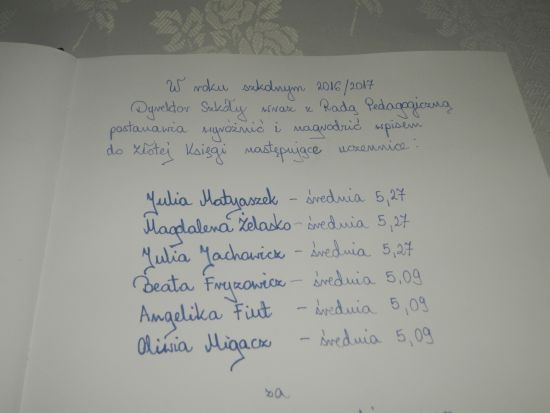 W roku szkolnym 2016/2017
Dyrektor Szkoły wraz z Radą Pedagogiczną
postanawia wyróżnić i nagrodzić wpisem
do Złotej Księgi następujące uczennice:
Julia Matyaszek – średnia 5,27
Magdalena Żelasko – średnia 5,27
Julia Jachowicz – średnia 5,27
Beata Fryzowicz – średnia 5,09
Angelika Fiut – średnia 5,09
Oliwia Migacz – średnia 5,09
za